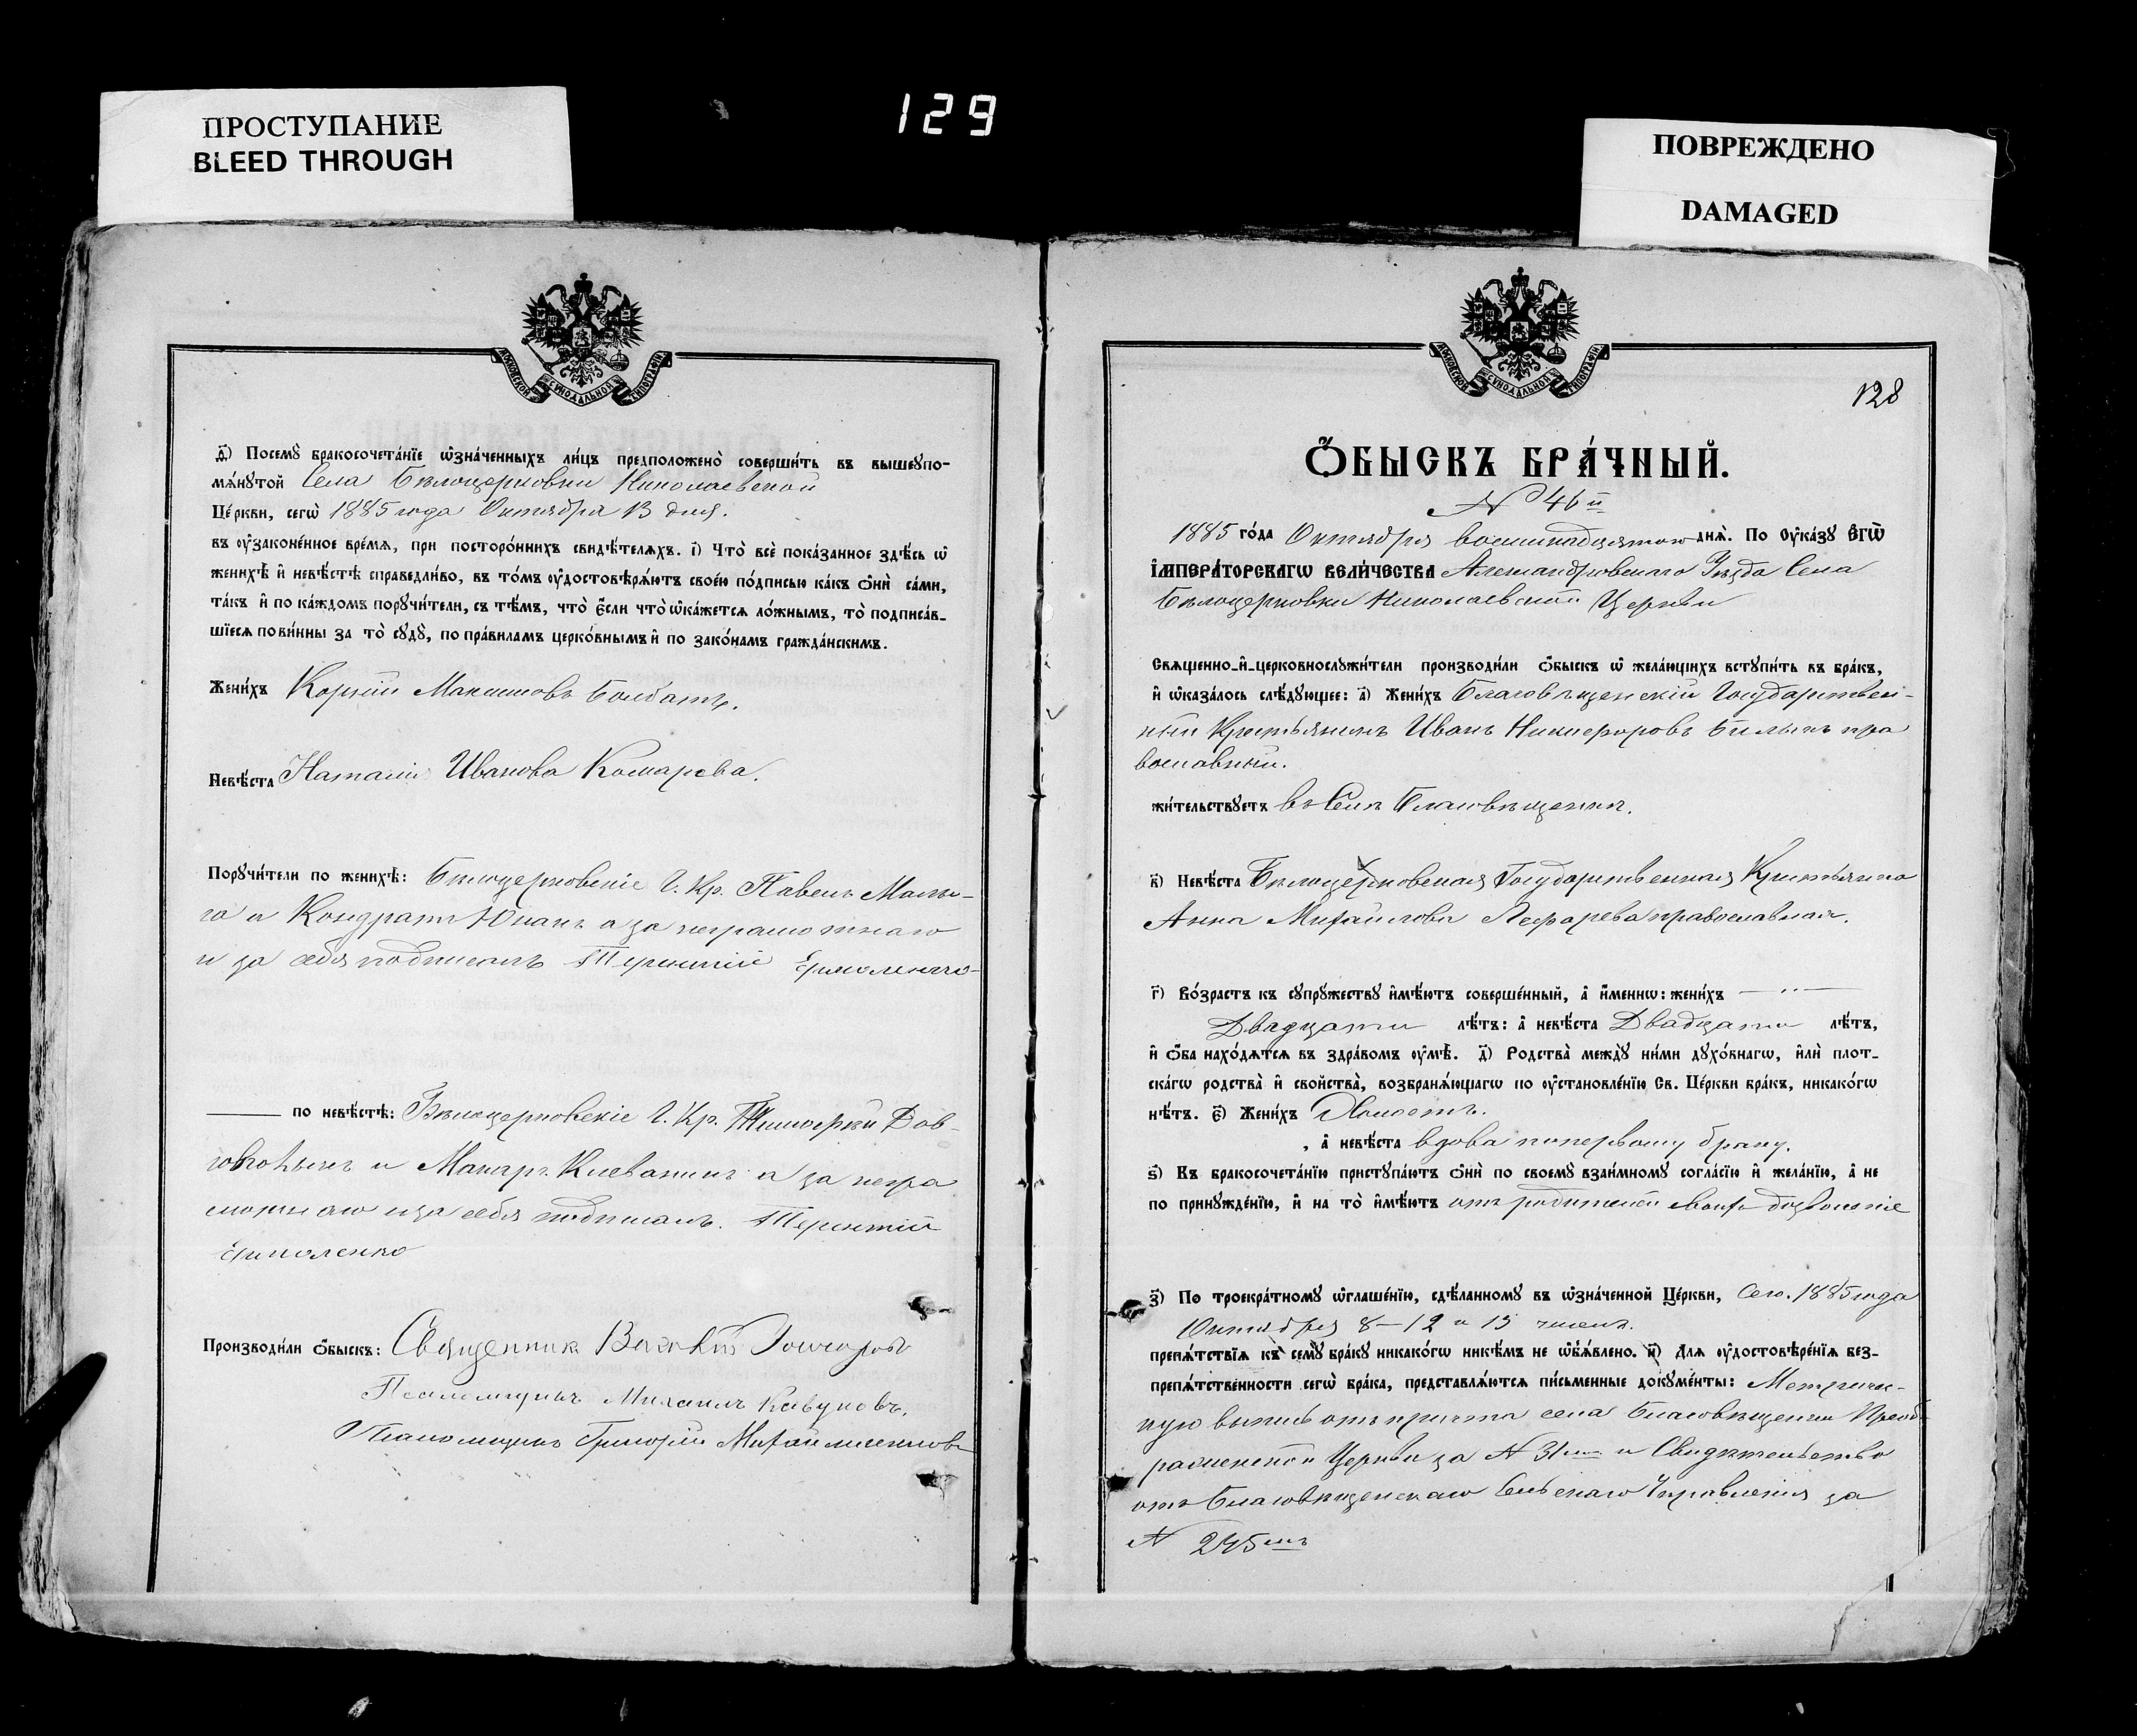 129
ПРОСТУПАНИЕ
BLEED THROUGH
ПОВРЕЖДЕНО
DAMAGED
МОСКОВСКОЙ СУНОДАЛЬНОЙ ТИПОГРАФІИ
д҃) Посемꙋ̀ бракосочета́нїе ѡ҆зна́ченныхъ ли́цъ предположено̀ соверши́ть въ вышеꙋпо-
мѧ́нꙋтой Села Бѣлоцерковки Николаевской
Це́ркви, сегѡ̀ 1885 года Октября 13 дня.
въ ᲂу҆законе́нное вре́мѧ, при посторо́ннихъ свидѣ́телѧхъ. і҃) Что̀ всѐ пока́занное здѣ́сь ѡ҆
женихѣ̀ и҆ невѣ́стѣ справедли́во, въ то́мъ ᲂу҆достовѣрѧ́ютъ свое́ю по́дписью ка́къ ѻ҆нѝ са́ми,
та́къ и҆ по ка́ждомъ порꙋчи́тели, съ тѣ́мъ, что̀ є҆́сли что̀ ѡ҆ка́жетсѧ ло́жнымъ, то̀ подписа́в-
шїесѧ пови́нны за то̀ сꙋдꙋ̀, по пра́виламъ церко́внымъ и҆ по зако́намъ гражда́нскимъ.
Жени́хъ Корній Максимовъ Болбатъ.
Невѣ́ста Наталія Иванова Комарева.
Порꙋчи́тели по женихѣ̀: Бѣлоцерковскіе Г. Кр. Павелъ Малы-
га и Кондратъ Юпакъ а за неграмотнаго
и за себя подписалъ Терентій Ермоленко
по невѣ́стѣ: Бѣлоцерковскіе Г. Кр. Тимофей Дов-
и Макаръ а за негра
мотнаго и за себя подписалъ. Терентій
Ермоленко
Производи́ли ѻ҆́быскъ: Священник
Псаломщикъ Михаилъ Кавуновъ.
Псаломщикъ Григорій
МОСКОВСКОЙ СУНОДАЛЬНОЙ ТИПОГРАФІИ
128
Ѻ҆́БЫСКЪ БРА́ЧНЫЙ.
№ 46й
1885 го́да Октября восемнадцатого днѧ̀. По ᲂу҆ка́зꙋ Є҆гѡ̀
І҆мпера́торскагѡ Вели́чества Александровскаго Уѣзда Села
Бѣлоцерковки Николаевской Церкви
Свѧщенно-и҆-церковнослꙋжи́тели производи́ли ѻ҆́быскъ ѡ҆ жела́ющихъ встꙋпи́ть въ бра́къ,
и҆ ѡ҆каза́лось слѣ́дꙋющее: а҃) Жени́хъ Благовѣщенскій Государствен-
ный Крестьянинъ Иванъ Никифоровъ Билыкъ пра
вославный.
жи́тельствꙋетъ въ Селѣ Благовѣщенкѣ.
в҃) Невѣ́ста Бѣлоцерковская Государственная Крестьянка
Анна Михаилова Лефарева православная.
г҃) Во́зрастъ къ сꙋпрꙋ́жествꙋ и҆мѣ́ютъ соверше́нный, а҆ и҆́меннѡ: жени́хъ — „ —
Двадцати лѣ́тъ: а҆ невѣ́ста Двадцати лѣ́тъ,
и҆ ѻ҆́ба нахо́дѧтсѧ въ здра́вомъ ᲂу҆мѣ̀. д҃) Родства̀ междꙋ̀ ни́ми дꙋхо́внагѡ, и҆лѝ плот-
ска́гѡ родства̀ и҆ свойства̀, возбранѧ́ющагѡ по ᲂу҆становле́нїю Св. Це́ркви бра́къ, никако́гѡ
нѣ́тъ. є҃) Жени́хъ Холостъ.
, а҆ невѣ́ста вдова по первому браку.
ѕ҃) Къ бракосочета́нїю пристꙋпа́ютъ ѻ҆нѝ по своемꙋ̀ взаи́мномꙋ согла́сїю и҆ жела́нїю, а҆ не
по принꙋжде́нїю, и҆ на то̀ и҆мѣ́ютъ отъ родителей своихъ дозволеніе
з҃) По троекра́тномꙋ ѡ҆глаше́нїю, сдѣ́ланномꙋ въ ѡ҆зна́ченной Це́ркви, сего. 1885 года
Октября 8 — 12 и 13 чиселъ.
препѧ́тствїѧ къ семꙋ̀ бра́кꙋ никако́гѡ никѣ́мъ не ѡ҆б̾ѧ́влено. и҃) Длѧ ᲂу҆достовѣре́нїѧ без-
препѧ́тственности сегѡ̀ бра́ка, представлѧ́ютсѧ пи́сьменные докꙋме́нты: Метричес-
кую выпись отъ причта села Благовѣщенки Преоб-
раженской Церкви за № 31мъ и Свидѣтельство
отъ Благовѣщенскаго Сельскаго Управленія за
№ 245мъ